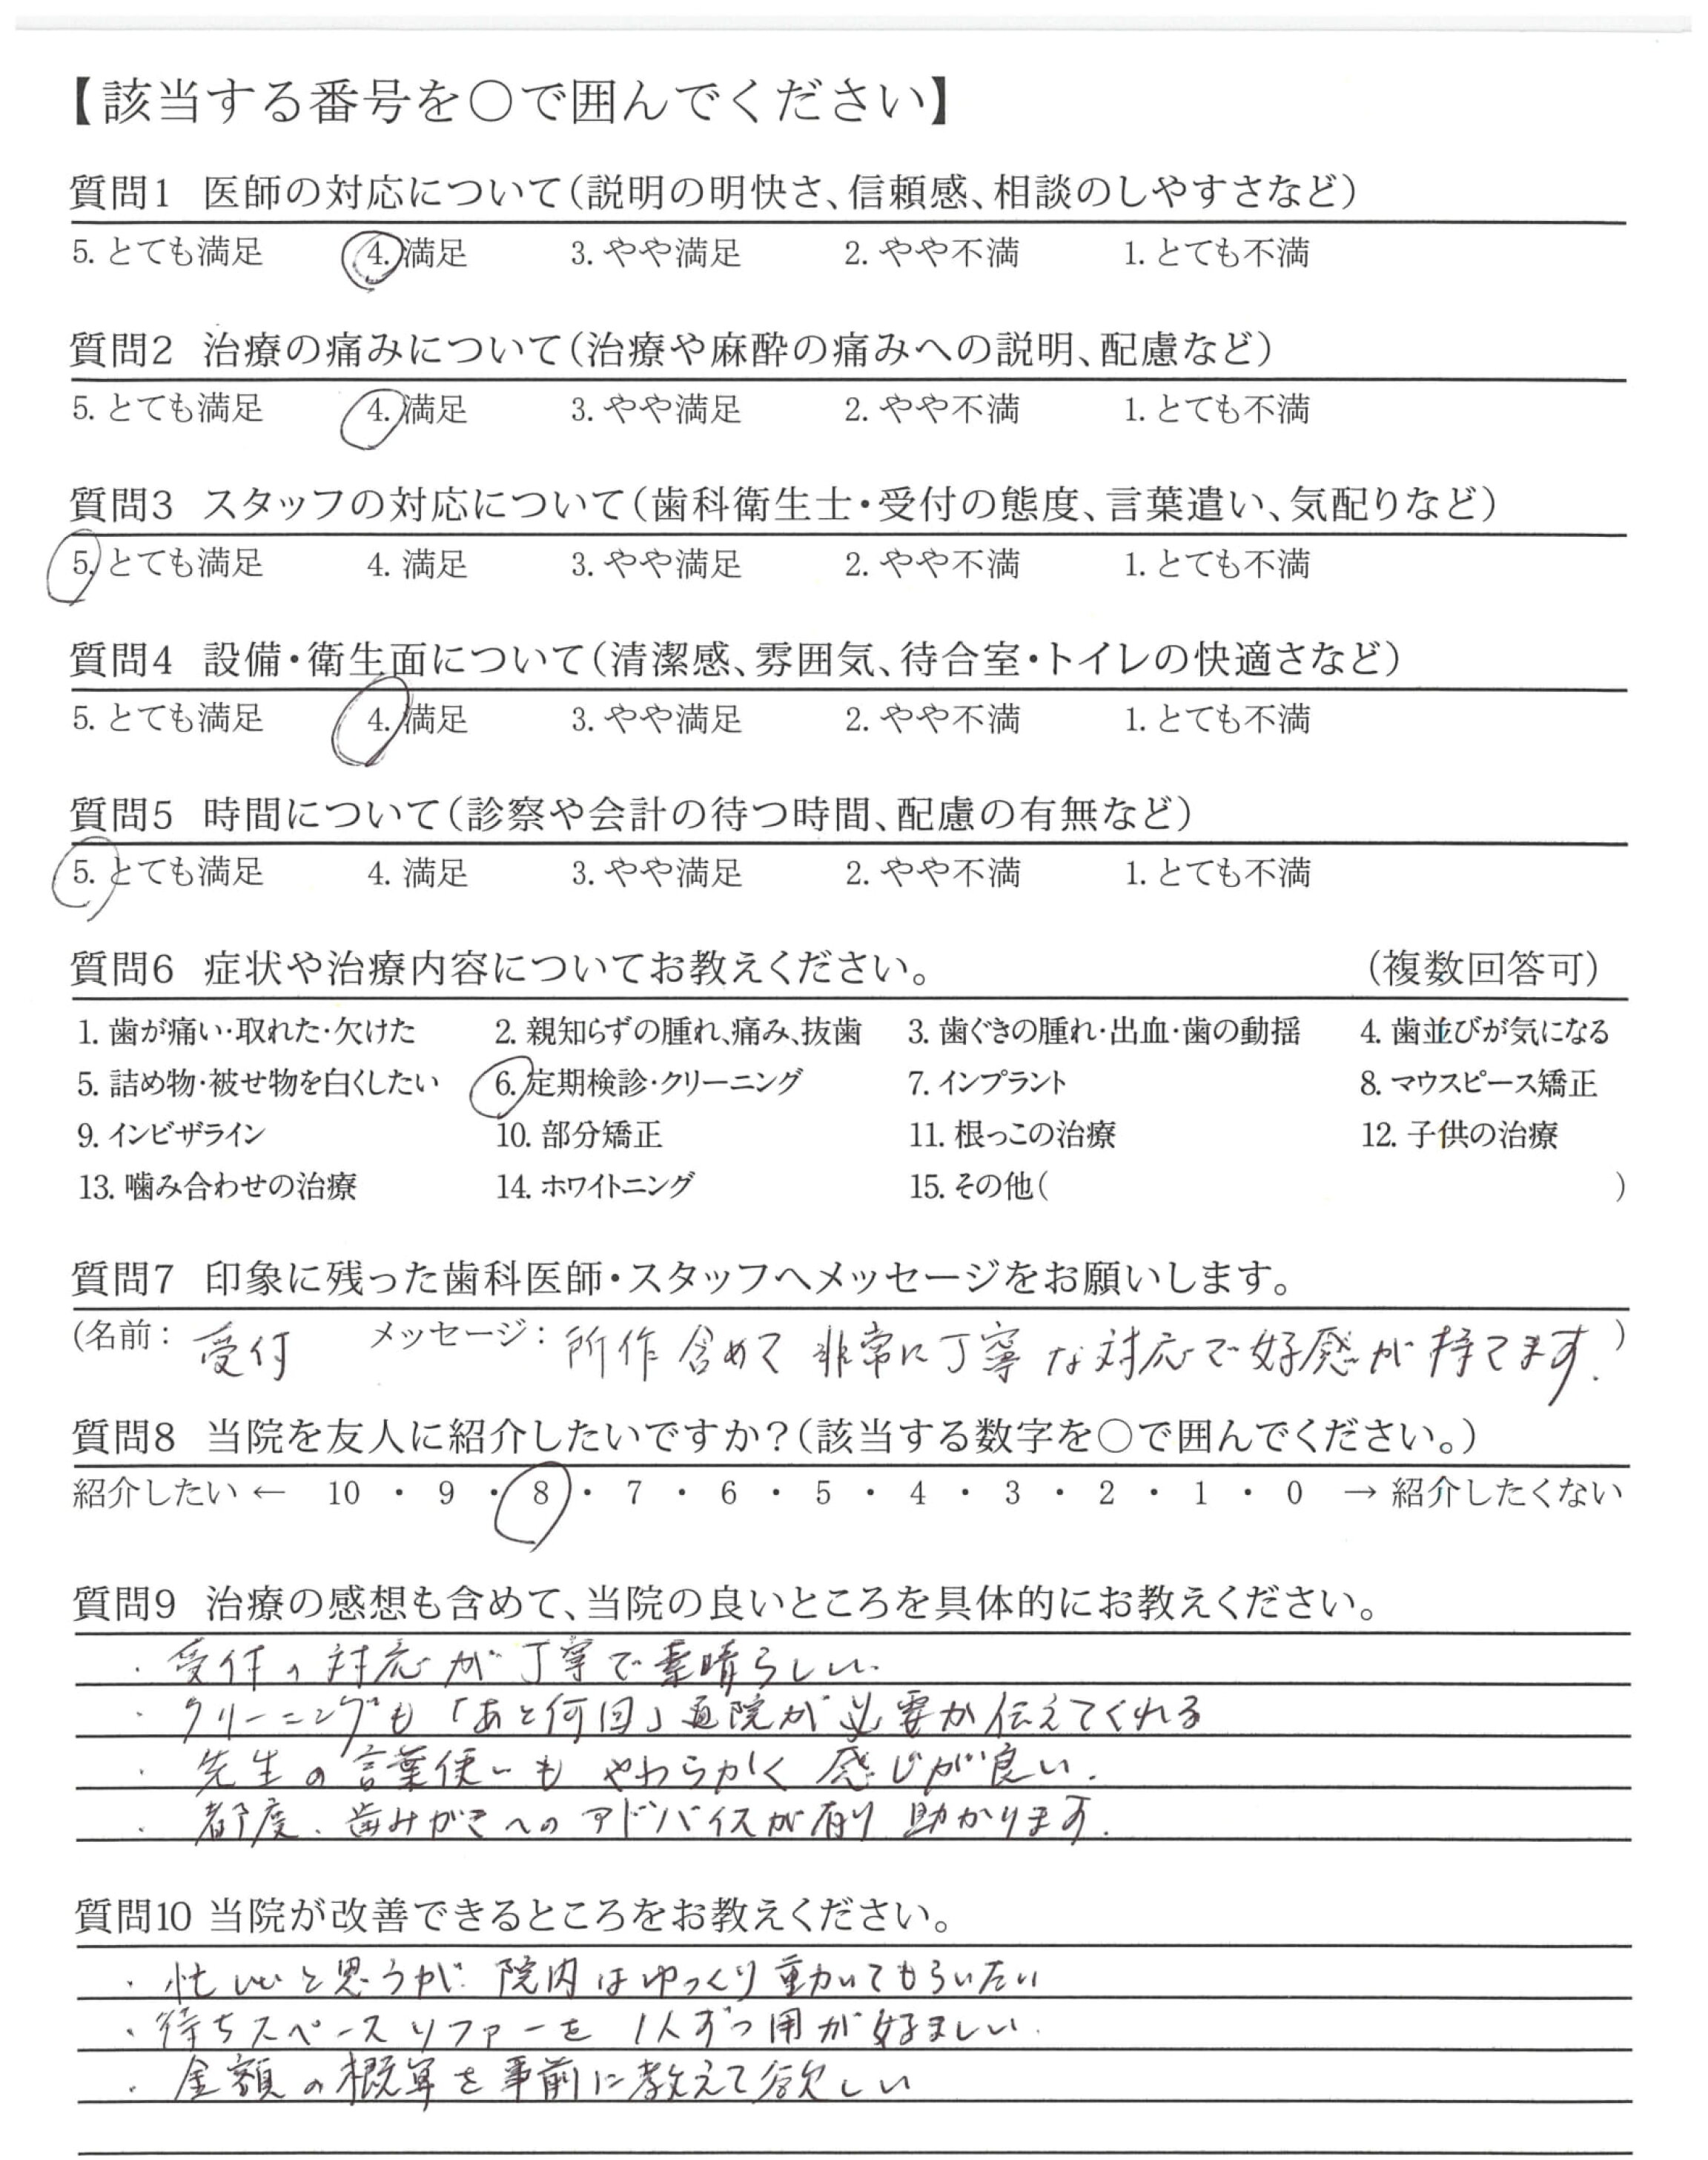 【該当する番号を○で囲んでください】
質問1 医師の対応について(説明の明快さ、信頼感、相談のしやすさなど)
5. とても満足 4. 満足 3. やや満足 2. やや不満 1. とても不満
質問2 治療の痛みについて(治療や麻酔の痛みへの説明、配慮など)
5. とても満足 4. 満足 3. やや満足 2. やや不満 1. とても不満
質問3 スタッフの対応について(歯科衛生士・受付の態度、言葉遣い、気配りなど)
5. とても満足 4. 満足 3. やや満足 2. やや不満 1. とても不満
質問4 設備・衛生面について(清潔感、雰囲気、待合室・トイレの快適さなど)
5. とても満足 4. 満足 3. やや満足 2. やや不満 1. とても不満
質問5 時間について(診察や会計の待つ時間、配慮の有無など)
5. とても満足 4. 満足 3. やや満足 2. やや不満 1. とても不満
質問6 症状や治療内容についてお教えください。 (複数回答可)
1. 歯が痛い・取れた・欠けた 2. 親知らずの腫れ、痛み、抜歯 3. 歯ぐきの腫れ・出血・歯の動揺 4. 歯並びが気になる
5. 詰め物・被せ物を白くしたい 6. 定期検診・クリーニング 7. インプラント 8. マウスピース矯正
9. インビザライン 10. 部分矯正 11. 根っこの治療 12. 子供の治療
13. 噛み合わせの治療 14. ホワイトニング 15. その他( )
質問7 印象に残った歯科医師・スタッフへメッセージをお願いします。
(名前: 受付 メッセージ: 所作含めて非常に丁寧な対応で好感が持てます. )
質問8 当院を友人に紹介したいですか?(該当する数字を○で囲んでください。)
紹介したい ← 10 ・ 9 ・ 8 ・ 7 ・ 6 ・ 5 ・ 4 ・ 3 ・ 2 ・ 1 ・ 0 → 紹介したくない
質問9 治療の感想も含めて、当院の良いところを具体的にお教えください。
・受付の対応が丁寧で素晴らしい.
・クリーニングも「あと何回」通院が必要か伝えてくれる
・先生の言葉使いもやわらかく感じが良い.
・都度、歯みがきへのアドバイスが有り助かります.
質問10 当院が改善できるところをお教えください。
・忙しいと思うが院内はゆっくり動いてもらいたい
・待ちスペースソファーを1人ずつ用が好ましい.
・金額の概算を事前に教えて欲しい